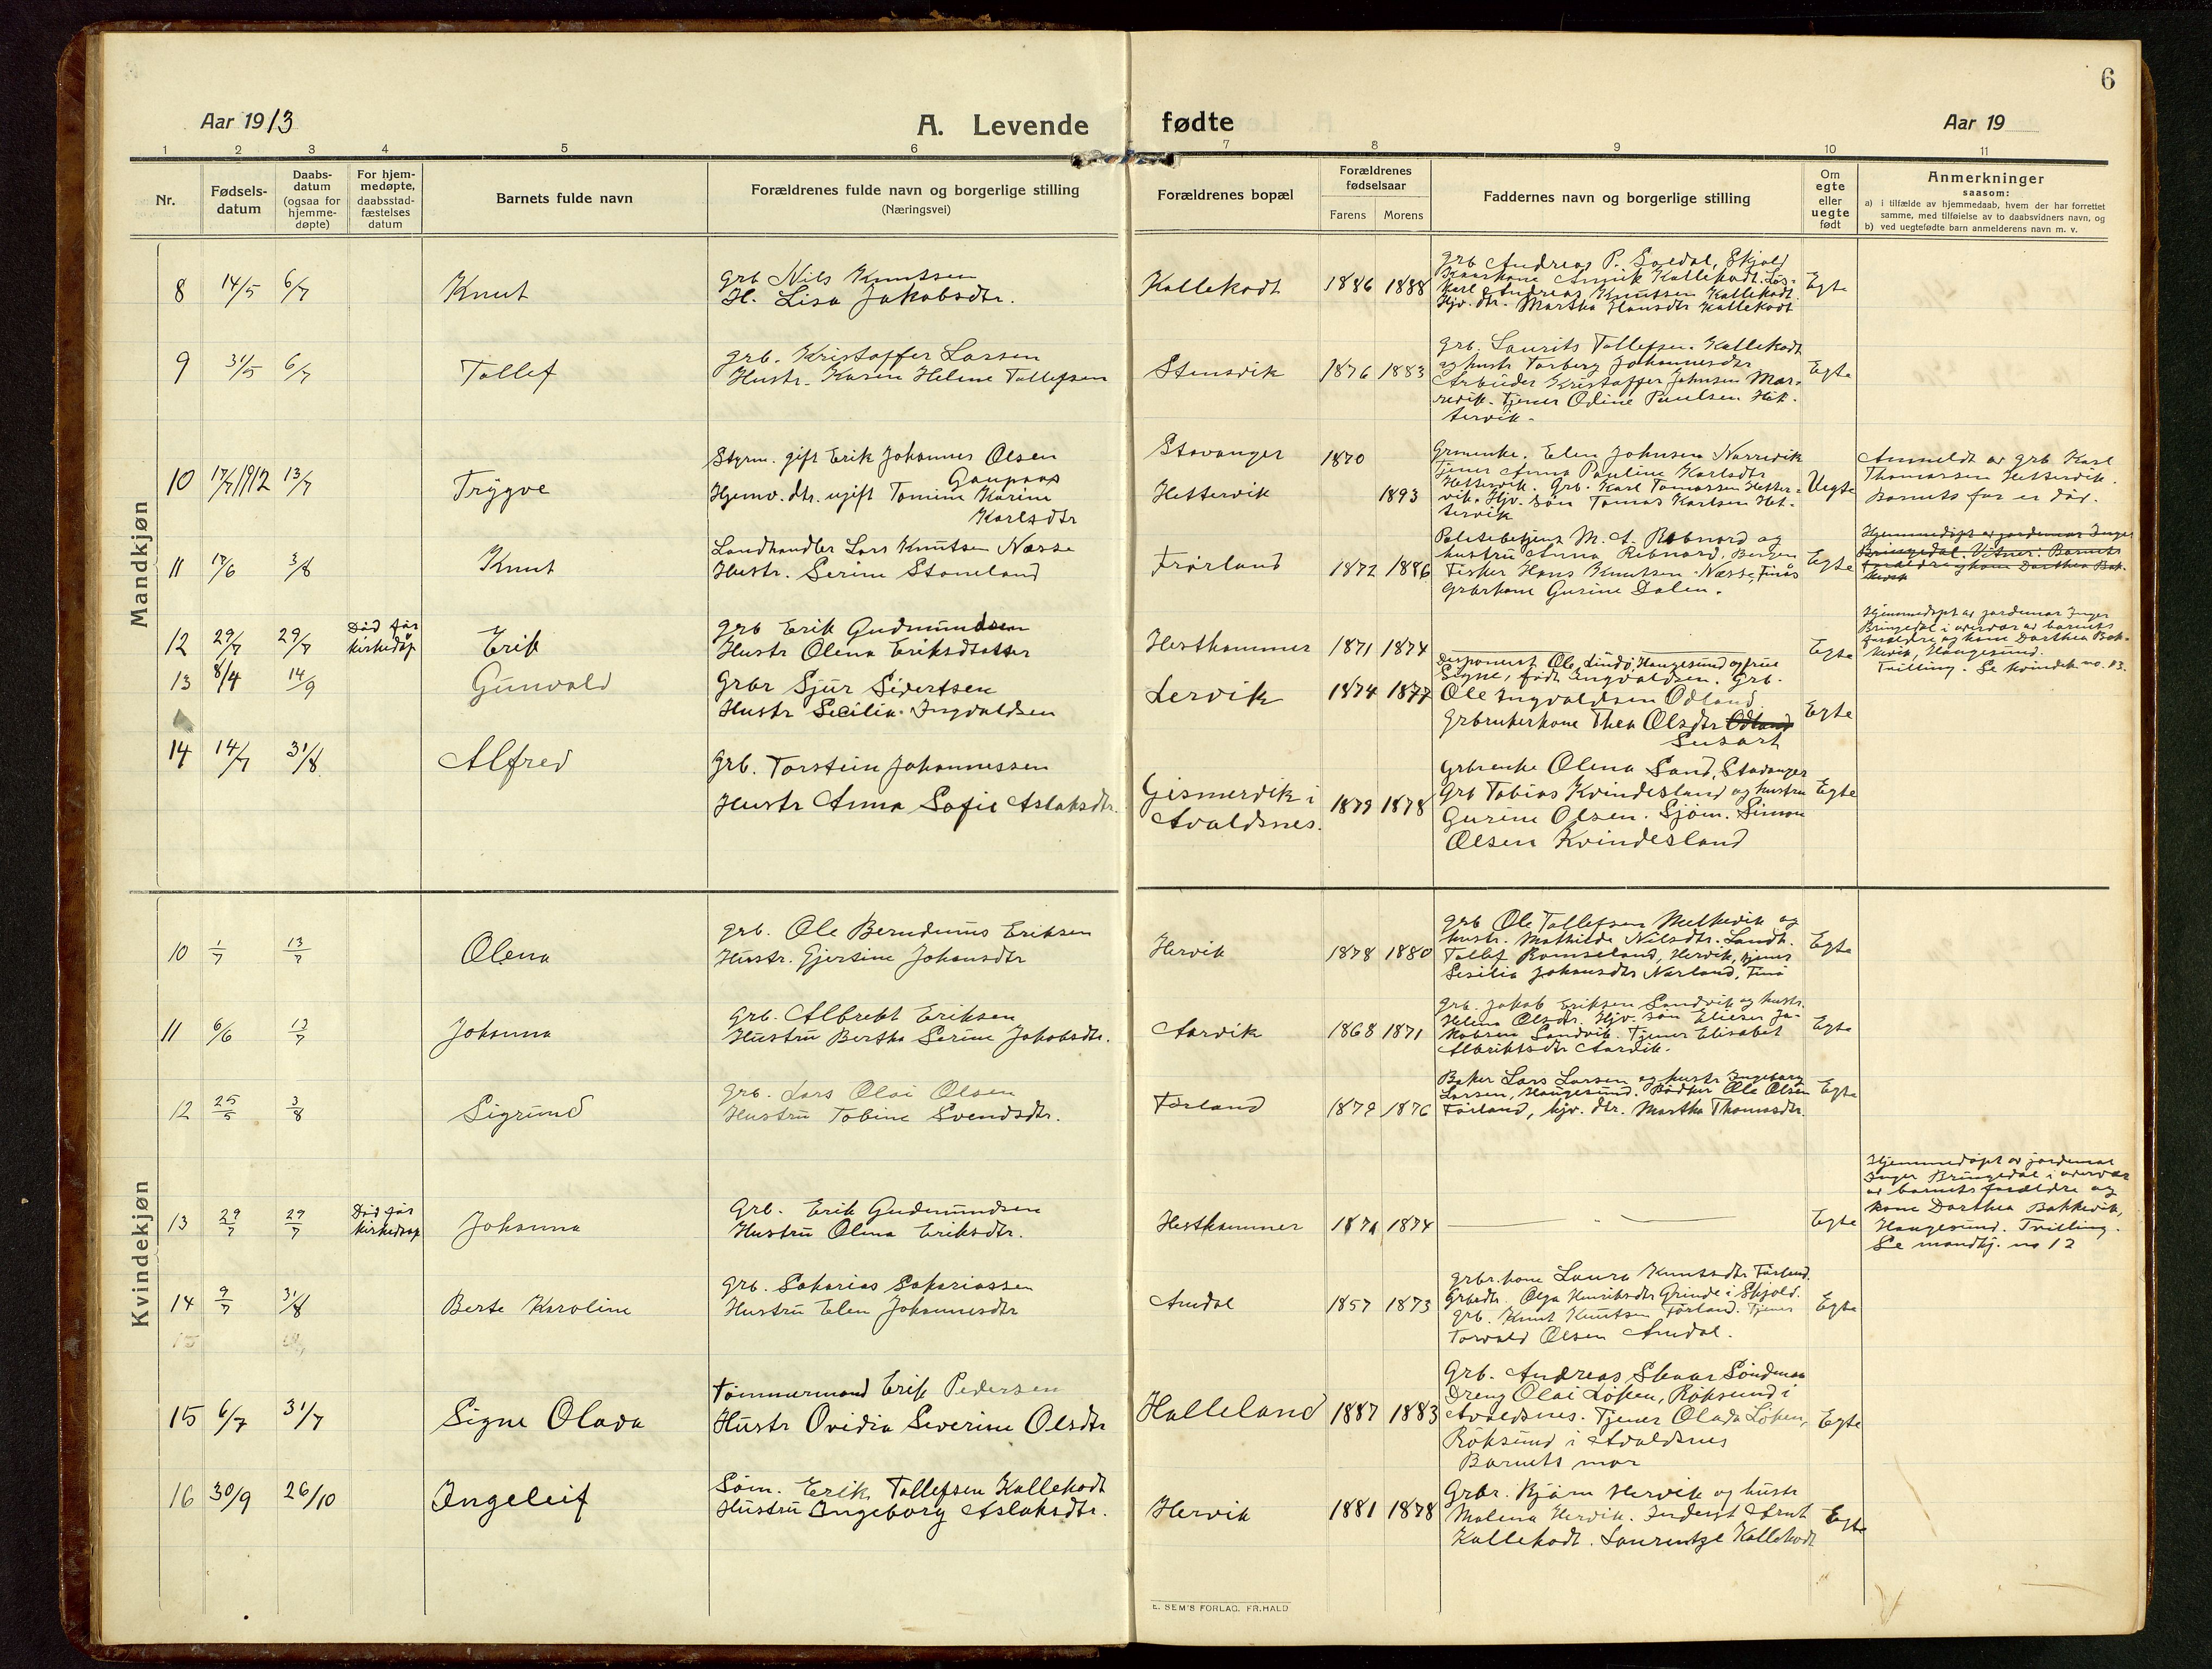 6
Aar 1913
A. Levende
fødte
Aar 19
1 2 3 4 5 6 7 8 9 10 11
Nr.
Fødsels-
datum
Daabs-
datum
(ogsaa for
hjemme-
døpte)
For hjem-
medøpte,
daabsstad-
fæstelses
datum
Barnets fulde navn
Forældrenes fulde navn og borgerlige stilling
(Næringsvei)
Forældrenes bopæl
Forældrenes
fødselsaar
Farens Morens
Faddernes navn og borgerlige stilling
Om
egte
eller
uegte
født
Anmerkninger
saasom:
a) i tilfælde av hjemmedaab, hvem der har forrettet
samme, med tilføielse av to daabsvidners navn, og
b) ved uegtefødte barn anmelderens navn m. v.
Mandkjøn
8 14/5 6/7 Knut
Grb Nils Knutsen
H. Lisa Jakobsdtr.
Kallekodt 1886 1888
Grb Andreas P. Skjold
Kaarkone Kallekodt. Løs-
karl Andreas Knutsen Kallekodt.
Hjv. dtr. Martha Hansdtr Kallekodt
Egte
9 31/5 6/7 Tollef
Grb. Kristoffer Larsen
Hustr. Karen Helene Tollefsen
Stensvik 1876 1883
Grb. Laurits Tollefsen Kallekodt
og hustr Torberg Johannesdtr
Arbeider Kristoffer Johnsen Mar-
revik. Tjener Odine Paulsen Het-
tervik.
Egte
10 17/7 1912 13/7 Trygve
Styrm. gift Erik Johannes Olsen
Gaupaas
Hjemv. dtr. ugift Tomine Karine
Karlsdtr
Stavanger 1870
Hettervik 1893
Grmenke. Elen Johnsen Narrevik
Tjener Anna Pauline Karlsdtr
Hettervik. Grb. Karl Tomassen Hetter-
vik. Hjv. søn Tomas Karlsen Het-
tervik
Uegte
Anmeldt av grb Karl
Thomassen Hettervik.
Barnets far er død.
11 17/6 3/8 Knut
Landhandler Lars Knutsen Næsse
Hustr. Serine Stoneland
Frørland 1872 1886
Politibetjent M. A. Rebnord og
hustru Anna Rebnord, Bergen
Fisker Hans Knutsen Næsse, Tinås
Grbrkone Gurine Dalen.
Egte
Hjemmedøpt av jordemor Inger
Bringedal. Vitner: Barnets
forældre og kone Dorthea Bak-
kevik
12 29/7 29/7 Død før
kirkedåp Erik
Grb Erik Gudmundsen
Hustr Olena Eriksdtatter
Hesthammer 1871 1874
Egte
Hjemmedøpt av jordemor Inger
Bringedal i overvær av barnets
forældre og kone Dorthea Bak-
kevik, Haugesund.
Tvilling. Se kvindek no. 13.
13 8/4 14/9 Gunvald
Grbr Sjur Sivertsen
Hustr Secilia Ingvaldsen
Lervik 1874 1877
Disponent Ole Lindø, Haugesund og frue
Signe, født Ingvaldsen. Grb.
Ole Ingvaldsen Odland
Grbrukerkone Thea Olsdtr Odland
Susort
Egte
14 14/7 31/8 Alfred
Grb. Torstein Johannessen
Hustr Anna Sofie Aslaksdtr.
Gismervik i
Avaldsnes. 1879 1878
Grbrenke Olena Sand, Stavanger
Grb Tobias Kvindesland og hustru
Gurine Olsen. Sjøm. Simon
Olsen Kvindesland
Egte
Kvindekjøn
10 1/7 13/7 Olena
Grb. Ole Berndinius Eriksen
Hustr. Gjertine Johansdtr
Hervik 1878 1880
Grb Ole Tollefsen Melkevik og
hustr. Mathilde Nilsdtr. Landh.
Tollef Ramseland, Hervik, tjener
Sesilia Johansdtr Nærland, Tinå
Egte
11 6/6 13/7 Johanna
Grb. Albrekt Eriksen
Hustru Bertha Serine Jakobsdtr.
Aarvik 1868 1871
Grb. Jakob Eriksen Sandvik og hustr.
Helena Olsdtr. Hjv. søn Elieser Ja-
kobsen Sandvik. Tjener Elisabet
Albriktsdtr Aarvik.
Egte
12 25/5 3/8 Sigrund
Grb. Lars Olai Olsen
Hustru Tobine Svendsdtr.
Førland 1879 1876
Baker Lars Larsen og hustr Ingeborg
Larsen, Haugesund. Bødker Ole Olsen
Førland, hjv. dtr. Martha Thomasdtr.
Egte
13 29/7 29/7 Død før
kirkedaap Johanna
Grb. Erik Gudmundsen
Hustru Olena Eriksdtr.
Hesthammer 1871 1874
Egte
Hjemmedøpt av jordemor
Inger Bringedal i overvær
av barnets forældre og
kone Dorthea Bakkevik,
Haugesund. Tvilling.
Se mandkj. no 12
14 9/7 31/8 Berte Karoline
Grb. Sakarias Sakariassen
Hustru Elen Johannesdtr
Amdal 1857 1873
Grbr.kone Laura Knutsdtr Førland.
Grbrdtr. Olga Henriksdtr Grinde i Skjold.
Grb. Knut Knutsen Førland. Tjener
Torvald Olsen Amdal.
Egte
15
15 6/7 31/7 Signe Olava
Tømmermand Erik Pedersen
Hustr Ovidia Severine Olsdtr
Halleland 1887 1883
Grb. Andreas Skaar Søndenaa
Dreng Olai Løken, Røksund i
Avaldsnes. Tjener Olava Løken,
Røksund i Avaldsnes
Barnets mor
Egte
16 30/9 26/10 Ingeleif
Søm. Erik Tollefsen Kallekodt
Hustru Ingeborg Aslaksdtr.
Hervik 1881 1878
Grbr. Bjørn Hervik og hustr
Malena Hervik. Inderst Arnt
Kallekodt. Laurentze Kallekodt
Egte
E. SEM'S FORLAG. FR.HALD